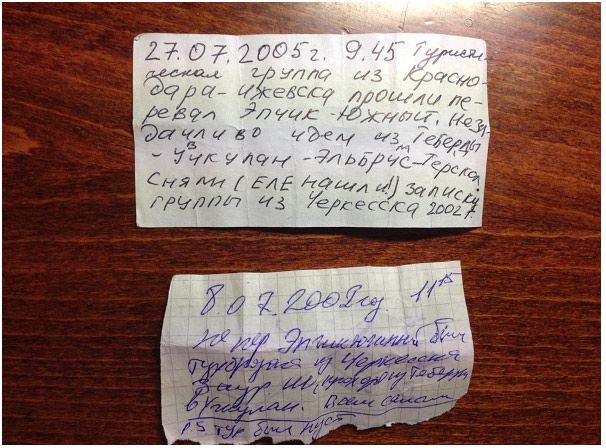 27.07.2005г. 9.45 Туристи-
ческая группа из Красно-
дара-Ижевска прошли пе-
ревал Эпчик-Южный.
идем из Теберды
-Учкулан-Эльбрус-Терскол
Сняли (ЕЛЕ НАШЛИ!) записку
группы из Черкесска 2002г.
8.07.2002 год. 11 15
на пер. Эпчик южный были
из Черкесска
из Теберды
в Учкулан. Всем
P.S тур был пуст